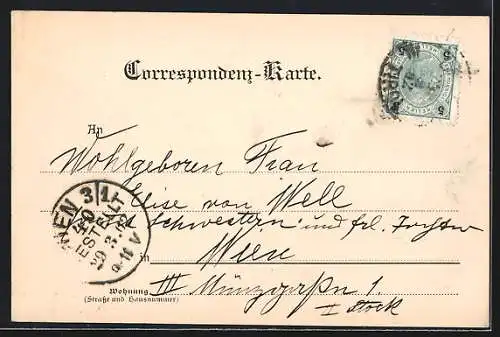 Correspondenz-Karte.
An
Wohlgeboren Frau
Elise von Well
Schwestern und frl. Tochter
in Wien
Wohnung
(Straße und Hausnummer)
III Münzgaße 1.
I Stock
WIEN 3/1
40
BESTELLT
9-11 V
5
5
5
5